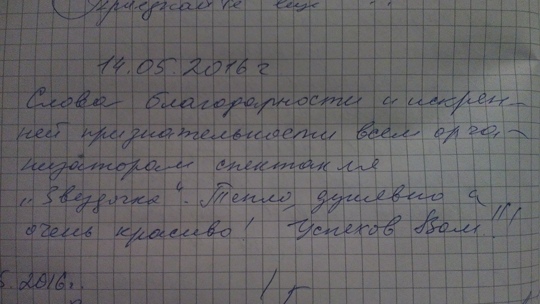 приезжайте еще
14.05.2016г
Слова благодарности и искрен-
ней признательности всем орга-
низаторам спектакля
„Звездочка“. Тепло, душевно и
очень красиво! Успехов Вам!!!
5.2016г.